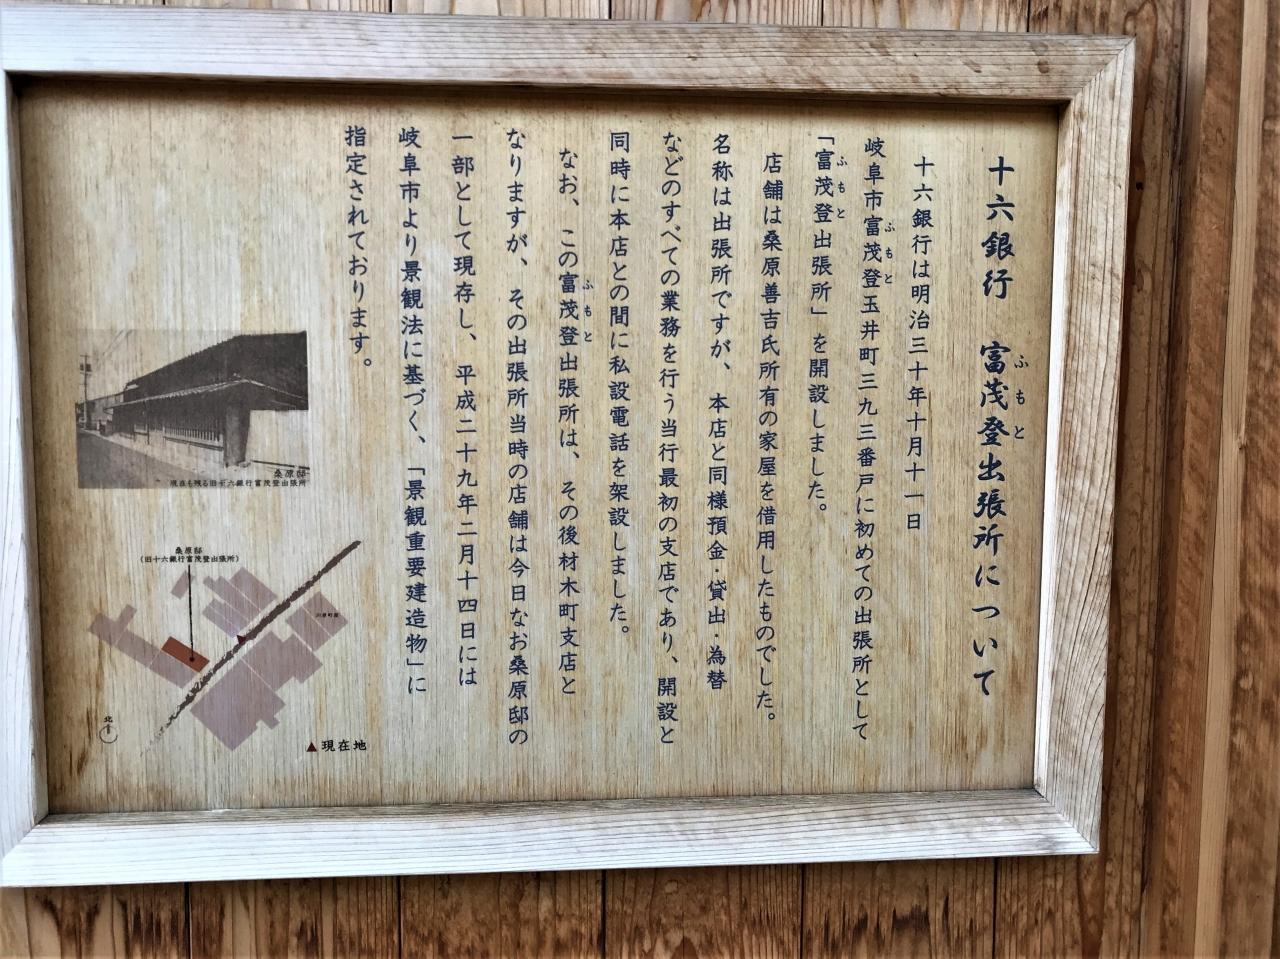 十六銀行 富茂登出張所について
十六銀行は明治三十年十月十一日
岐阜市富茂登玉井町三九三番戸に初めての出張所として
「富茂登出張所」を開設しました。
店舗は桑原善吉氏所有の家屋を借用したものでした。
名称は出張所ですが、本店と同様預金・貸出・為替
などのすべての業務を行う当行最初の支店であり、開設と
同時に本店との間に私設電話を架設しました。
なお、この富茂登出張所は、その後材木町支店と
なりますが、その出張所当時の店舗は今日なお桑原邸の
一部として現存し、平成二十九年二月十四日には
岐阜市より景観法に基づく、「景観重要建造物」に
指定されております。
桑原邸
現在も残る旧十六銀行富茂登出張所
桑原邸
(旧十六銀行富茂登出張所)
北
▲現在地